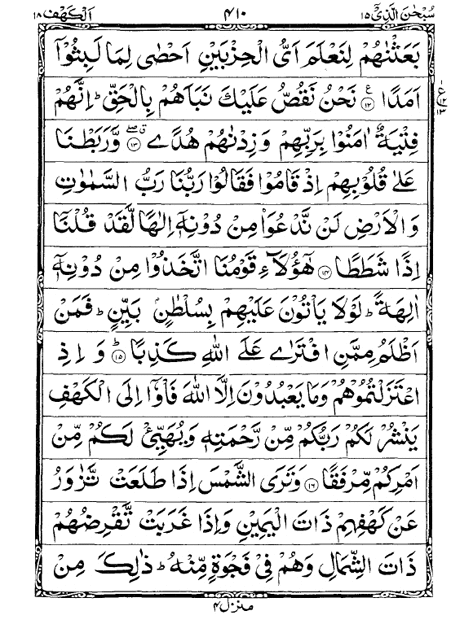 سُبْحٰنَ الَّذِىْٓ ١٥ ٤١٠ اَلْكَهْف ١٨
بَعَثْنٰهُمْ لِنَعْلَمَ اَىُّ الْحِزْبَيْنِ اَحْصٰى لِمَا لَبِثُوْٓا
اَمَدًا ۝١٢ نَحْنُ نَقُصُّ عَلَيْكَ نَبَاَهُمْ بِالْحَقِّ ؕ اِنَّهُمْ
فِتْيَةٌ اٰمَنُوْا بِرَبِّهِمْ وَزِدْنٰهُمْ هُدًى ۝١٣ وَّرَبَطْنَا
عَلٰى قُلُوْبِهِمْ اِذْ قَامُوْا فَقَالُوْا رَبُّنَا رَبُّ السَّمٰوٰتِ
وَالْاَرْضِ لَنْ نَّدْعُوَا۟ مِنْ دُوْنِهٖٓ اِلٰهًا لَّقَدْ قُلْنَآ
اِذًا شَطَطًا ۝١٤ هٰٓؤُلَآءِ قَوْمُنَا اتَّخَذُوْا مِنْ دُوْنِهٖٓ
اٰلِهَةً ؕ لَوْلَا يَاْتُوْنَ عَلَيْهِمْ بِسُلْطٰنٍۭ بَيِّنٍ ؕ فَمَنْ
اَظْلَمُ مِمَّنِ افْتَرٰى عَلَى اللّٰهِ كَذِبًا ؕ ۝١٥ وَ اِذِ
اعْتَزَلْتُمُوْهُمْ وَمَا يَعْبُدُوْنَ اِلَّا اللّٰهَ فَاْوٗٓا اِلَى الْكَهْفِ
يَنْشُرْ لَكُمْ رَبُّكُمْ مِّنْ رَّحْمَتِهٖ وَيُهَيِّئْ لَكُمْ مِّنْ
اَمْرِكُمْ مِّرْفَقًا ۝١٦ وَتَرَى الشَّمْسَ اِذَا طَلَعَتْ تَّزٰوَرُ
عَنْ كَهْفِهِمْ ذَاتَ الْيَمِيْنِ وَاِذَا غَرَبَتْ تَّقْرِضُهُمْ
ذَاتَ الشِّمَالِ وَهُمْ فِىْ فَجْوَةٍ مِّنْهُ ؕ ذٰلِكَ مِنْ
منزل ٤